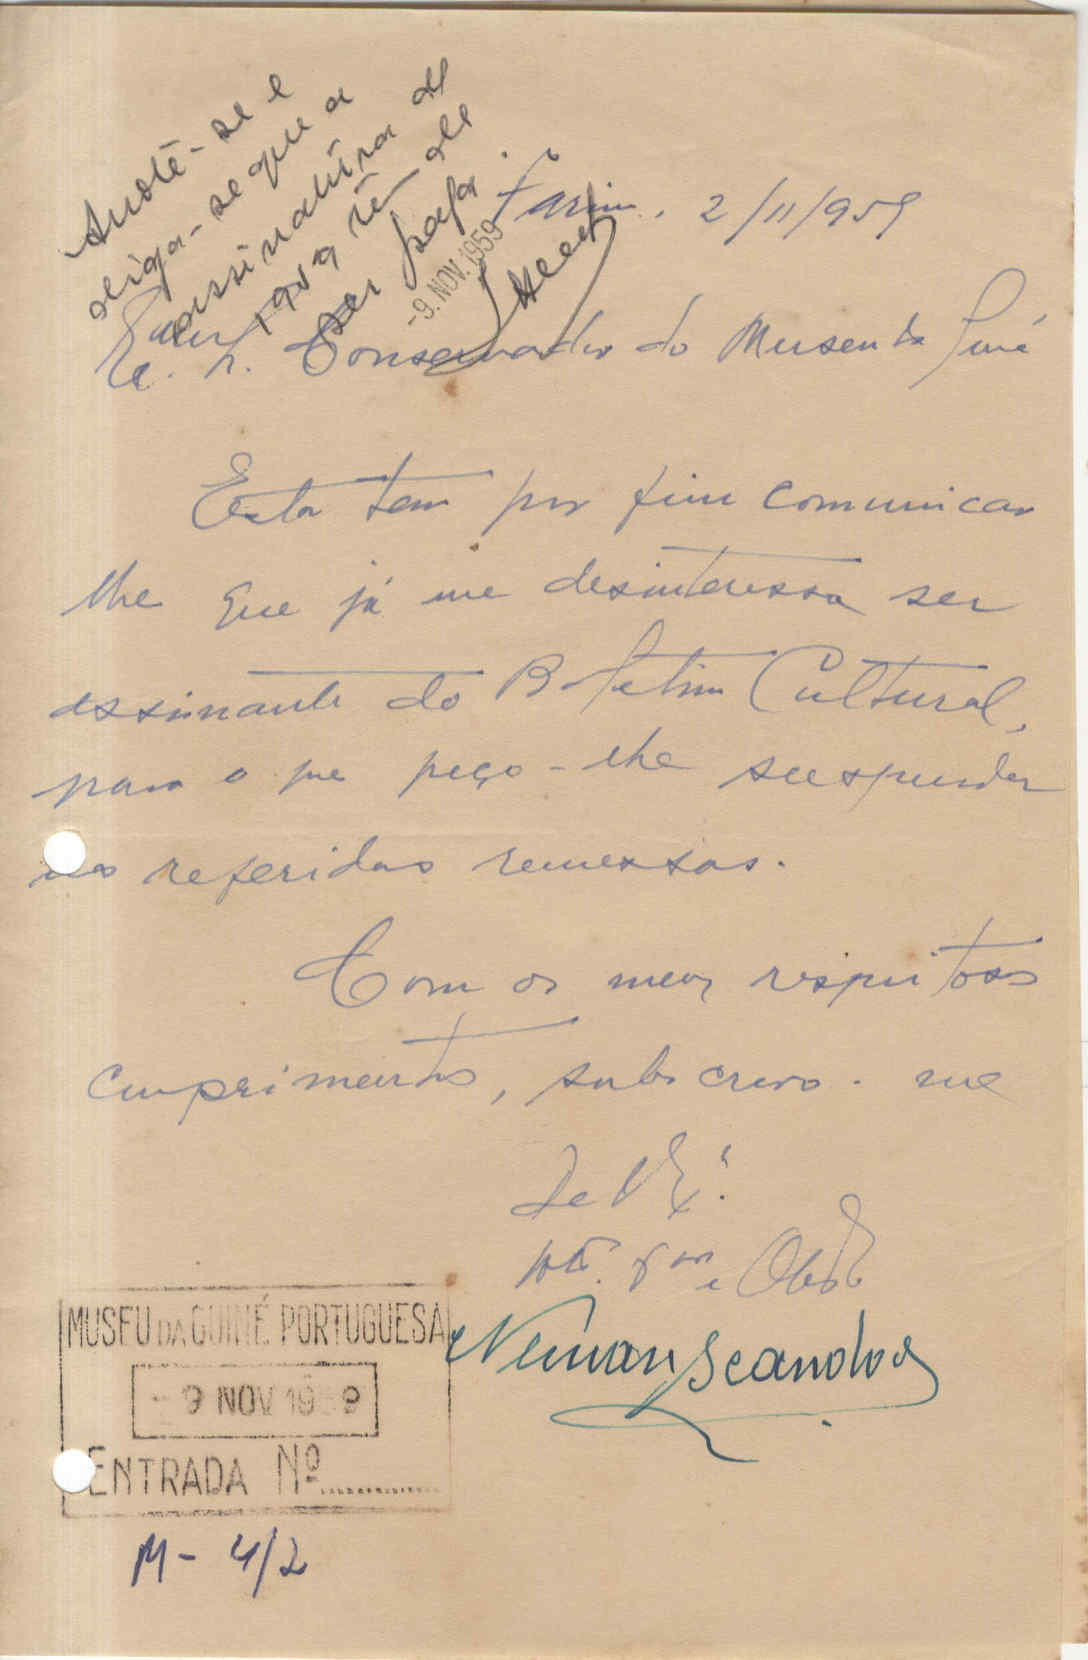 Anote-se e
diga-se que a
assinatura de
1959 tem de
ser paga
-9. NOV. 1959
Farim, 2/11/959
Conservador do Museu da Guiné
Esta tem por fim comunicar
lhe que já me desinteressa ser
assinante do Boletim Cultural,
para o que peço-lhe suspender
as referidas remessas.
Com os meus respeitosos
cumprimentos, subscrevo-me
De V. Ex.ª
MUSEU DA GUINÉ PORTUGUESA
-9 NOV 1959
ENTRADA Nº
M-4/2